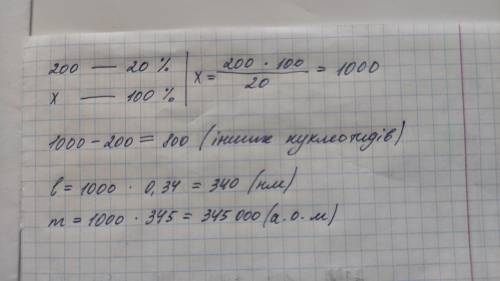 200 — 20 % | x = 200 · 100 / 20 = 1000
x — 100 %
1000 - 200 = 800 (інших нуклеотидів)
l = 1000 · 0,34 = 340 (нм)
m = 1000 · 345 = 345 000 (а.о.м)